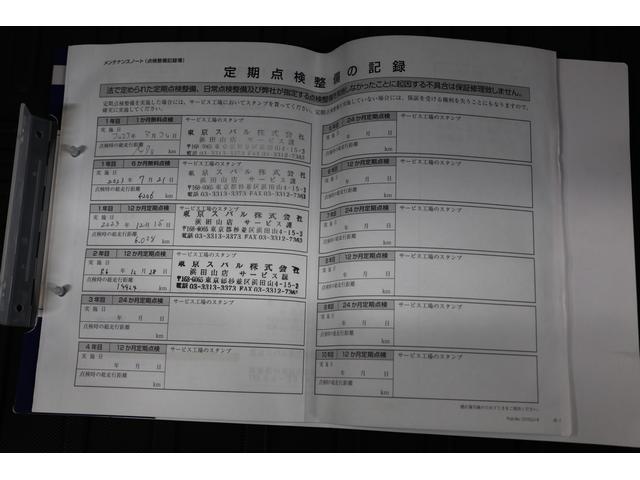 メンテナンスノート(点検整備記録簿)
定期点検整備の記録
法で定められた定期点検整備、日常点検整備及び弊社が指定する点検整備を実施しなかったことに起因する不具合は保証修理致しません。
定期点検整備を実施した場合には、サービス工場においてスタンプを貰ってください。定期点検整備を実施していない場合には、保証を受ける権利を失うことにもなりますので、
確実に実施してください。
1年目 1か月無料点検
サービス工場のスタンプ
実施日
点検時の総走行距離
km
東京スバル株式会社
浜田山店 サービス課
〒168-0065 東京都杉並区浜田山4-15-2
電話 03-3313-3373 FAX 03-3312-7363
1年目 6か月無料点検
サービス工場のスタンプ
実施日
2023年 7月21日
点検時の総走行距離
km
東京スバル株式会社
浜田山店 サービス課
〒168-0065 東京都杉並区浜田山4-15-2
電話 03-3313-3373 FAX 03-3312-7363
1年目 12か月定期点検
サービス工場のスタンプ
実施日
2023年12月15日
点検時の総走行距離
km
東京スバル株式会社
浜田山店 サービス課
〒168-0065 東京都杉並区浜田山4-15-2
電話 03-3313-3373 FAX 03-3312-7363
2年目 12か月定期点検
サービス工場のスタンプ
実施日
点検時の総走行距離
km
東京スバル株式会社
浜田山店 サービス課
〒168-0065 東京都杉並区浜田山4-15-2
電話 03-3313-3373 FAX 03-3312-7363
3年目 24か月定期点検
サービス工場のスタンプ
実施日
年 月 日
点検時の総走行距離
km
4年目 12か月定期点検
サービス工場のスタンプ
実施日
年 月 日
点検時の総走行距離
km
5年目 24か月定期点検
サービス工場のスタンプ
実施日
年 月 日
点検時の総走行距離
km
6年目 12か月定期点検
サービス工場のスタンプ
実施日
年 月 日
点検時の総走行距離
km
7年目 24か月定期点検
サービス工場のスタンプ
実施日
年 月 日
点検時の総走行距離
km
8年目 12か月定期点検
サービス工場のスタンプ
実施日
年 月 日
点検時の総走行距離
km
9年目 24か月定期点検
サービス工場のスタンプ
実施日
年 月 日
点検時の総走行距離
km
10年目 12か月定期点検
サービス工場のスタンプ
実施日
年 月 日
点検時の総走行距離
km